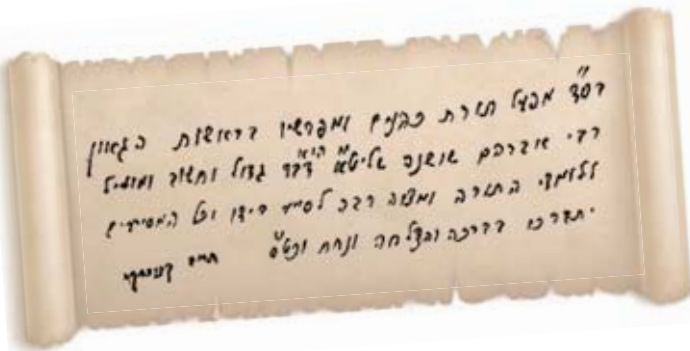 בס"ד מפעל תורת כהנים ומפרשיו בראשות הגאון
רבי אברהם שושנה שליט"א הי"א דבר גדול וחשוב ומועיל
ללומדי התורה ומצוה רבה לסייע בידו וכל המסייעים
יתברכו בברכה והצלחה ונחת וכט"ס חיים קניבסקי